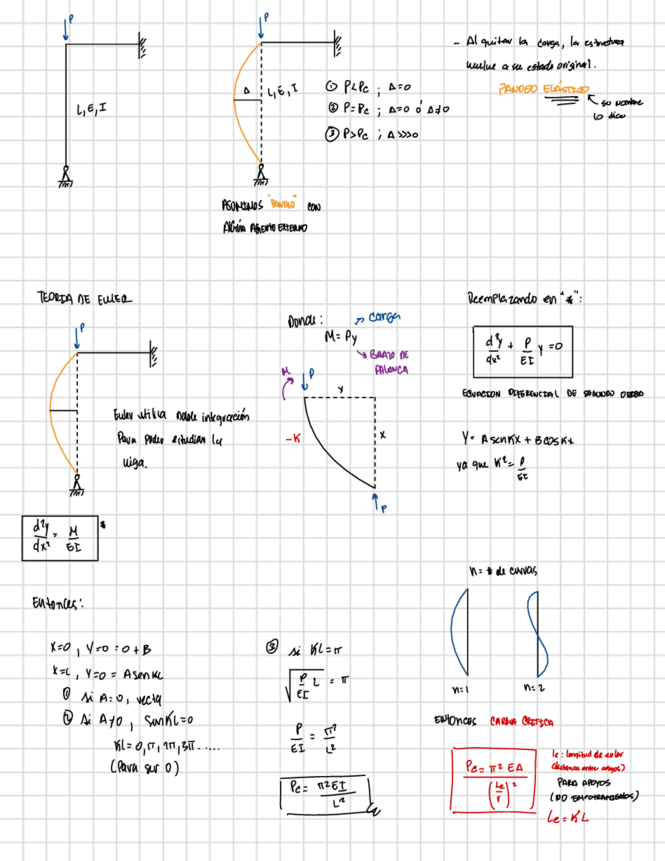 P
L, E, I
P
Δ
L, E, I
① P<Pc ; Δ=0
② P=Pc ; Δ=0 ó Δ≠0
③ P>Pc ; Δ>>>0
ASUMIMOS "PANDEO" CON
ALGÚN AGENTE EXTERNO
- Al quitar la carga, la estructura
vuelve a su estado original.
PANDEO ELÁSTICO
su nombre
lo dice
TEORIA DE EULER
P
Euler utiliza doble integración
Para poder estudiar la
viga.
d²y/dx² = M/EI *
Donde:
carga
M = Py
BRAZO DE
PALANCA
M
P
y
x
-K
P
Reemplazando en "*":
d²y/dx² + P/EI y = 0
ECUACION DIFERENCIAL DE SEGUNDO ORDEN
Y = A sen Kx + B cos Kx
ya que K² = P/EI
Entonces:
X=0, Y=0 = 0 + B
X=L, Y=0 = A sen KL
① si A=0, recta
② si A≠0, Sen KL=0
KL = 0, π, 2π, 3π ....
(Para ser 0)
③ si KL=π
√(P/EI) L = π
P/EI = π²/L²
Pc = π²EI/L²
n = # de curvas
n=1
n=2
ENTONCES CARGA CRITICA
Pc = π² EA/(Le/r)²
le: longitud de euler
(distancia entre apoyos)
PARA APOYOS
(NO EMPOTRAMIENTOS)
Le = KL